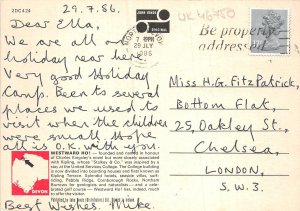 2DC424
29.7.86.
JOHN HINDE
ORIGINAL
UK 46750
7 30PM
29 JLY
1986
Be properly
addressed
Dear Ella,
We are all on
holiday near here
Very good Holiday
Camp. Been to several
places we used to
visit when the children
were small. Hope
all is O.K. with you.
Miss H.G. FitzPatrick,
Bottom Flat,
25, Oakley St.,
Chelsea,
LONDON,
S.W.3.
WESTWARD HO! — founded and named in honour
of Charles Kingsley's novel but more closely associated
with Kipling, whose "Stalky & Co" was inspired by a
stay at the United Services College. The College building
is now divided into
DEVON
Best Wishes. Mike.